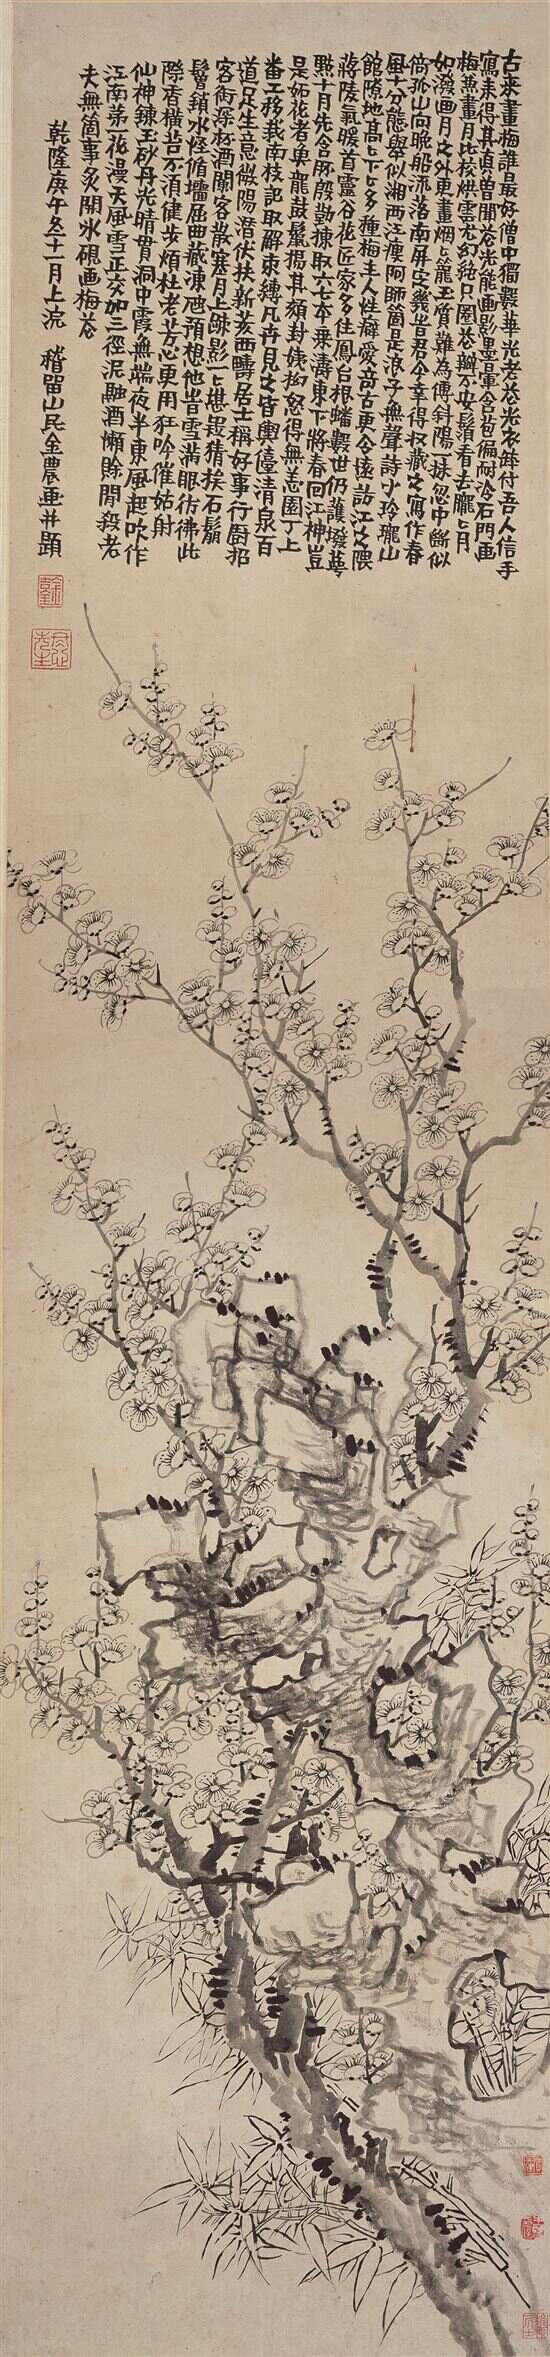 古來畫梅誰最好僧中獨數華光老花光衣鉢付吾人信手
寫來得其真曾聞花光能畫影墨暈含苞偏耐冷石門畫
梅兼畫月比校烘雲尤幻絕只圈花瓣不安鬚看去朧朧月
如潑画月之外更畫烟烟籠玉質難為傳斜陽一抹忽中斷似
倚孤山向晚船流落南屏定幾昔君今幸得收藏之寫作春
風十分態舉似湘西江瘦阿師箇是浪子無聲詩小玲瓏山
館隙地高高下下多種梅主人性癖愛高古更令遠訪江之隈
蔣陵氣暖首靈谷花匠家多住鳳台根蟠數世仍護撥萼
點十月先含胚殷勤揀取六七本乘溝東下將春回江神豈
是妬花者卑龍鼓鬣揚其頦封姨拗怒得無恙園丁上
番工移栽南枝記取解束縛凡卉見之皆輿儓清泉百
道足生意微陽潛伏扶新荄西疇居士稱好事行廚招
客銜深杯酒闌客散塞月上疎影一一堪疑猜挨石鬚
鬢鎖水怪循壖屈曲藏凍虺預想他時雪滿眼彷彿此
際香橫苔不須健步煩杜老芳心更用狂吟催姑射
仙神鍊玉砂丹光晴貫洞中霞無端夜半東風起吹作
江南第一花漫天風雪正交加三徑泥融酒懶賒閒殺老
夫無箇事炙開冰硯画梅花
乾隆庚午冬十一月上浣 稽留山民金農画并題